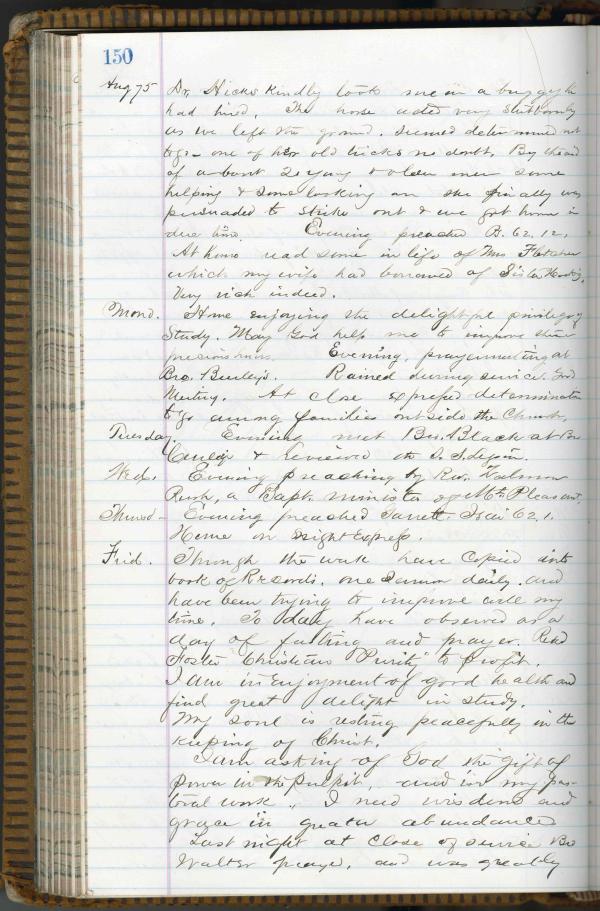 150
Aug 75 Dr. Hicks kindly took me in a buggy he
had hired. The horse acted very stubbornly
as we left the ground. Seemed determined not
to go – one of her old tricks no doubt. By the aid
of about 20 young & older men some
helping & some looking on she finally was
persuaded to strike out & we got home in
due time. Evening preached 62, 12.
At home read some in life of Mrs Fletcher
which my wife had borrowed of Sister
Very rich indeed.
Mond. Home enjoying the delightful privilege of
Study. May God help me to improve these
precious hours. Evening, prayermeeting at
Bro. Rained during service. Good
Meeting. At close expressed determination
to go among families outside the Church.
Tuesday. Evening met Bro. Black at Bro
& Reviewed the S. S. Lesson.
Wed. Evening preaching by Rev.
Rush, a Bapt. minister of Mt. Pleasant.
Thursd – Evening preached Isai 62, 1.
Home on Night Express.
Frid. Through the week have copied into
book of Records, one sermon daily, and
have been trying to improve well my
time. To day have observed as a
day of fasting and prayer. Read
Foster Christian Purity to profit.
I am in Enjoyment of good health and
find great delight in study.
My soul is resting peacefully in the
keeping of Christ.
I am asking of God the gift of
power in the pulpit, and in my pas-
toral work. I need wisdom and
grace in greater abundance
Last night at close of service Bro
Walter prayed, and was greatly